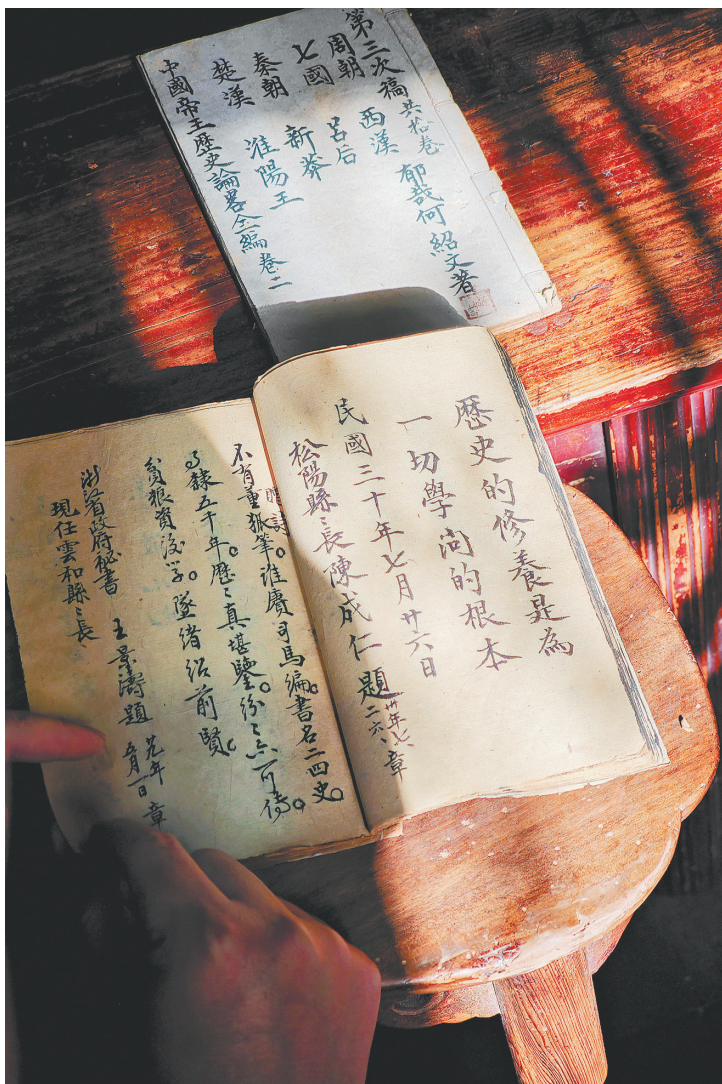 第三次稿 共拾卷 郁哉何紹文著
周朝 西漢
七國 呂后
秦朝 新莽
楚漢 淮陽王
中國帝王歷史論畧全編卷二
歷史的修養是為
一切學问的根本
民國三十年七月廿六日
松陽縣〻長陳成仁題 卅年七、二六、章
贈詩。
不有董狐筆誰賡司馬編。書名二四史。
錄五千年。歷〻真堪鑒。紛〻亦可傳。
資後学。墜緒紹前賢。
浙省政府秘書
現任雲和縣〻長
王景濤題
年
五月一日 章